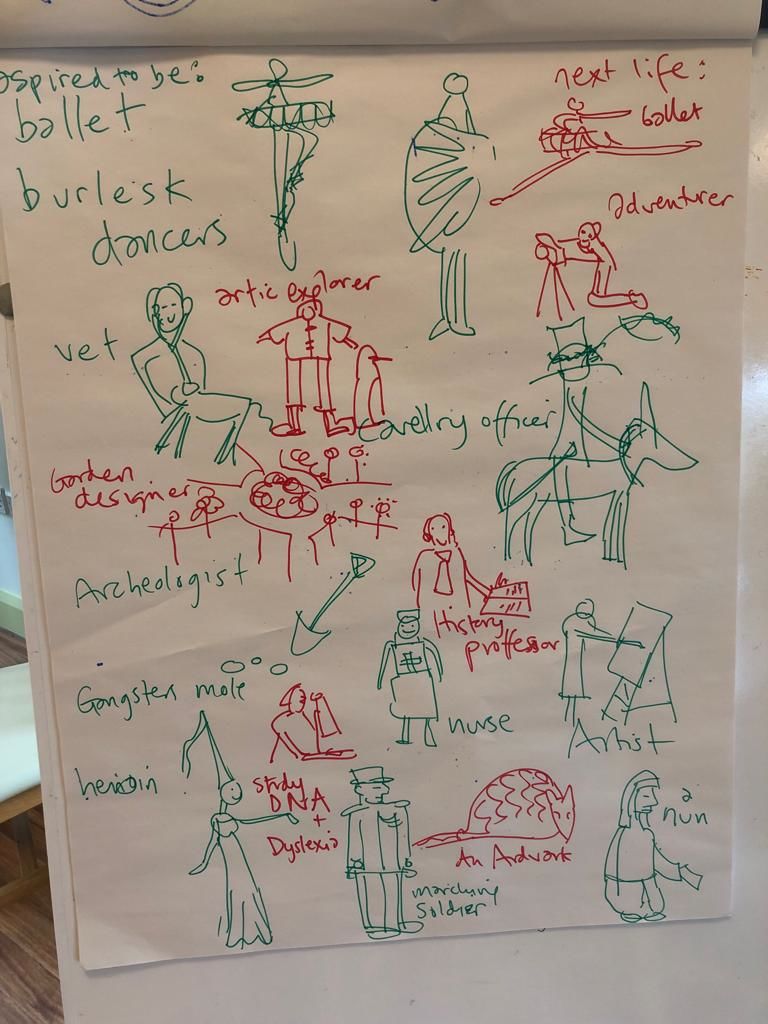 aspired to be:
ballet
next life:
ballet
burlesk
dancers
adventurer
artic explorer
vet
cavellry officer
Garden
designer
Archeologist
History
professor
Gangsters mole
nurse
Artist
heroin
study
DNA
+
Dyslexia
An Ardvark
a
nun
marching
soldier